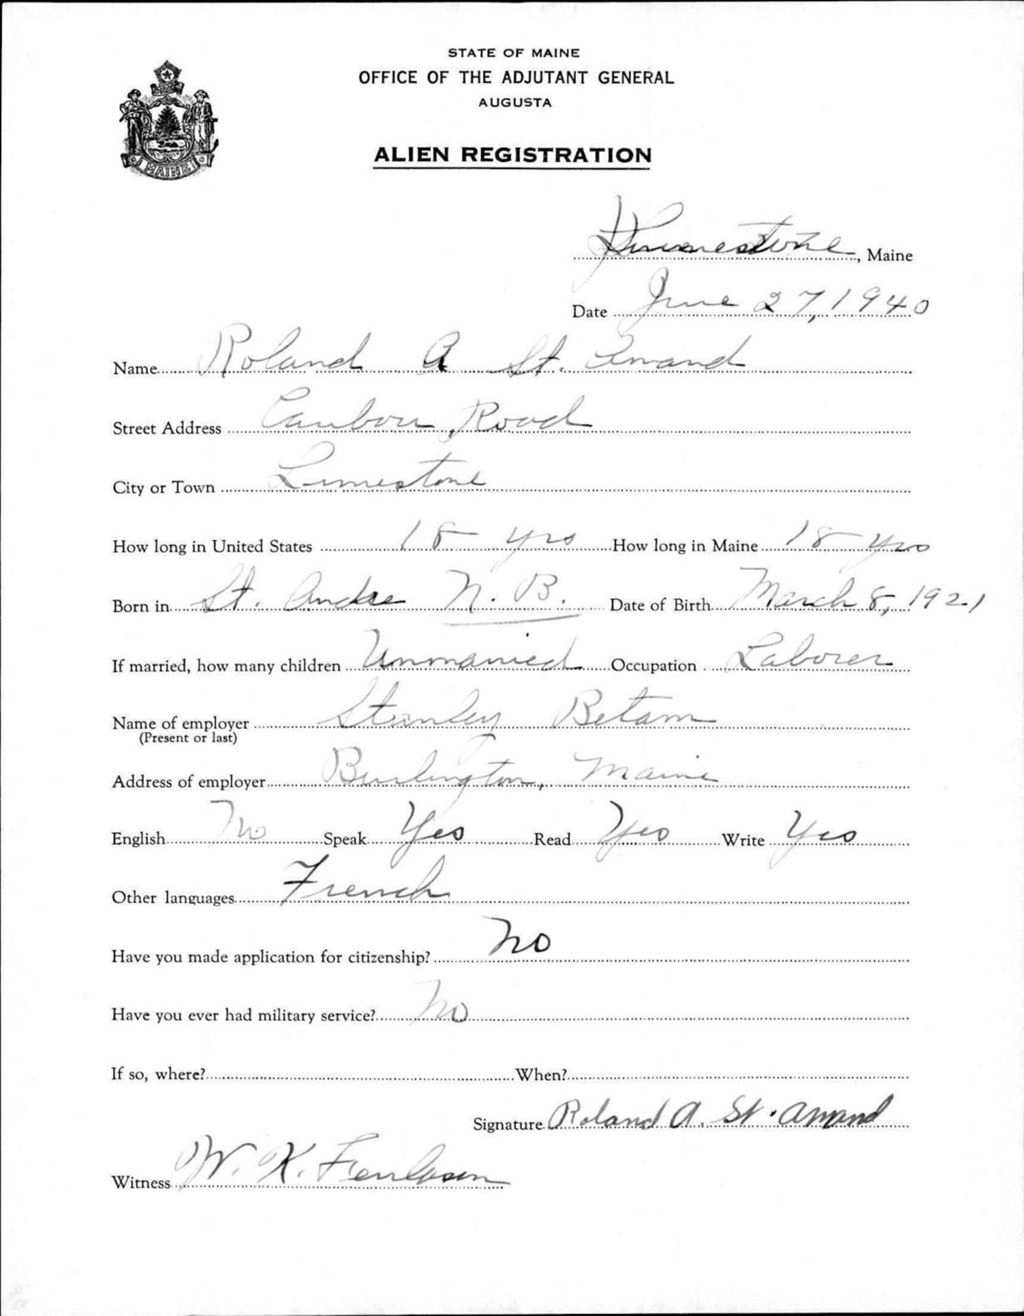 STATE OF MAINE
OFFICE OF THE ADJUTANT GENERAL
AUGUSTA
ALIEN REGISTRATION
MAINE
Limestone, Maine
Date June 27, 1940
Name Roland A St. Amand
Street Address Caribou Road
City or Town Limestone
How long in United States 18 yrs How long in Maine 18 yrs
Born in St. Andre N.B. Date of Birth March 8, 1921
If married, how many children Unmarried Occupation Laborer
Name of employer Stanley
(Present or last)
Address of employer Burlington, Maine
English No Speak Yes Read Yes Write Yes
Other languages French
Have you made application for citizenship? No
Have you ever had military service? No
If so, where? When?
Signature Roland A. St. Amand
Witness W. K.